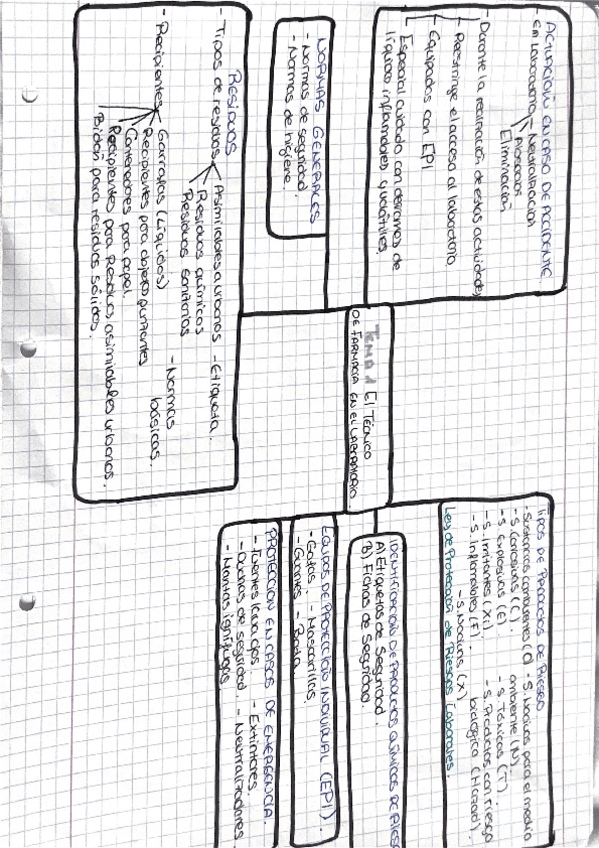 TEMA 1 El TÉCNICO
DE FARMACIA EN EL LABORATORIO.
ACTUACIÓN EN CASO DE ACCIDENTE.
- En laboratorio
Neutralización
Absorción
Eliminación
- Durante la realización de estas actividades
Reestringe el acceso al laboratorio
Equipados con EPI
Especial cuidado con derrames de
líquidos inflamables y volátiles.
NORMAS GENERALES
- Normas de seguridad.
- Normas de higiene.
RESIDUOS
- Tipos de residuos
Asimilables a urbanos
Residuos químicos
Residuos sanitarios
- Etiqueta.
- Normas
básicas.
- Recipientes
Garrafas (Líquidos)
Recipientes para objetos punzantes
Contenedores para papel.
Recipientes para Residuos asimilables urbanos.
Bidón para residuos sólidos.
TIPOS DE PRODUCTOS DE RIESGO
- Sustancias comburentes (O)
- S. Corrosivas (C).
- S. Explosivas (E)
- S. Irritantes (Xi)
- S. Inflamables (F).
- S. Nocivas para el medio
ambiente (N)
- S. Tóxicas (T).
- S. Productos con riesgo
biológico (Hazard).
- S. Nocivas (X)
Ley de Protección de Riesgos Laborales.
IDENTIFICACIÓN DE PRODUCTOS QUÍMICOS DE RIESG
A) Etiquetas de Seguridad.
B) Fichas de Seguridad.
EQUIPOS DE PROTECCIÓN INDIVIDUAL (EPI).
- Gafas. - Mascarillas.
- Guantes - Bata.
PROTECCIÓN EN CASOS DE EMERGENCIA.
- Fuentes lava ojos. - Extintores.
- Duchas de seguridad - Neutralizadores.
- Mantas ignífugas